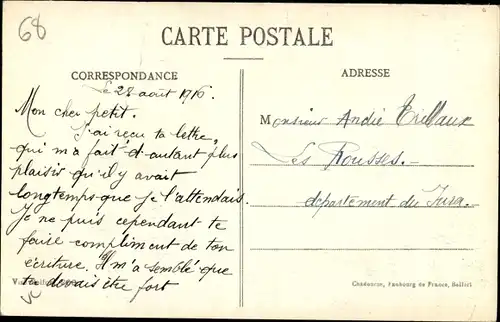 68
CARTE POSTALE
CORRESPONDANCE
ADRESSE
Le 28 août 1916.
Mon cher petit.
J'ai reçu ta lettre,
qui m'a fait d'autant plus
plaisir qu'il y avait
longtemps que je l'attendais.
Je ne puis cependant te
faire compliment de ton
écriture. Il m'a semblé que
tu devais être fort
Monsieur André
Les Rousses.
département du Jura.
Chadourne, Faubourg de France, Belfort